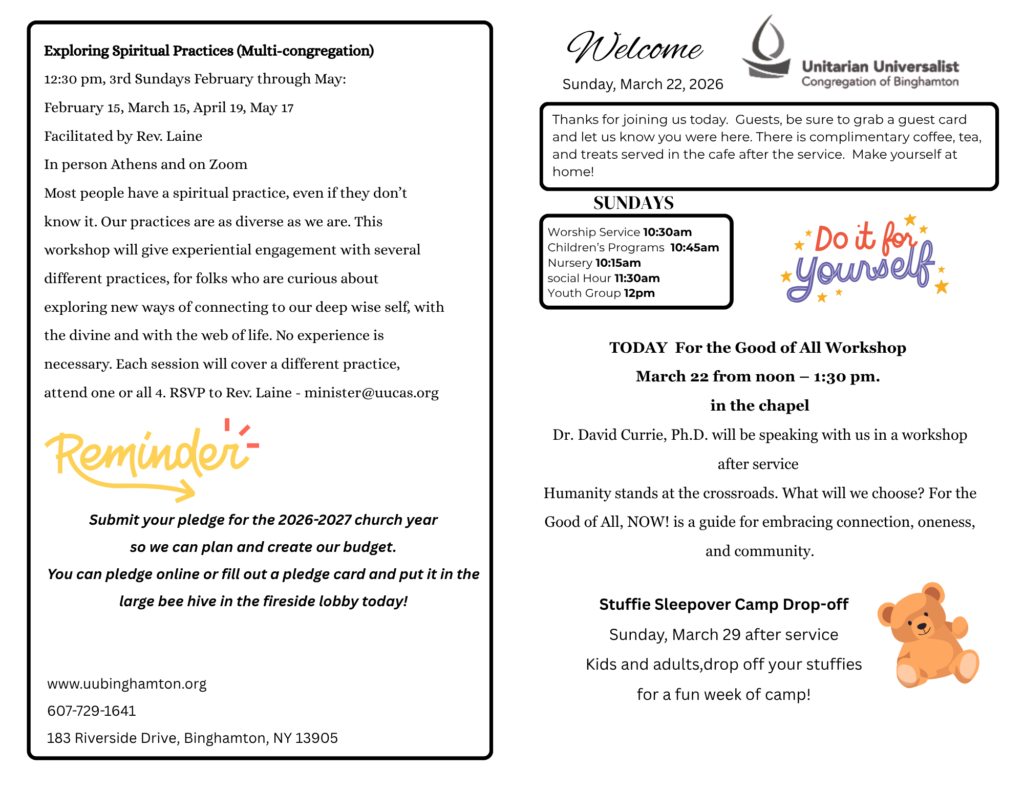 Exploring Spiritual Practices (Multi-congregation)
12:30 pm, 3rd Sundays February through May:
February 15, March 15, April 19, May 17
Facilitated by Rev. Laine
In person Athens and on Zoom
Most people have a spiritual practice, even if they don't
know it. Our practices are as diverse as we are. This
workshop will give experiential engagement with several
different practices, for folks who are curious about
exploring new ways of connecting to our deep wise self, with
the divine and with the web of life. No experience is
necessary. Each session will cover a different practice,
attend one or all 4. RSVP to Rev. Laine - minister@uucas.org
Reminder
Submit your pledge for the 2026-2027 church year
so we can plan and create our budget.
You can pledge online or fill out a pledge card and put it in the
large bee hive in the fireside lobby today!
www.uubinghamton.org
607-729-1641
183 Riverside Drive, Binghamton, NY 13905
Welcome
Sunday, March 22, 2026
Unitarian Universalist
Congregation of Binghamton
Thanks for joining us today.  Guests, be sure to grab a guest card
and let us know you were here. There is complimentary coffee, tea,
and treats served in the cafe after the service.  Make yourself at
home!
SUNDAYS
Worship Service 10:30am
Children's Programs  10:45am
Nursery 10:15am
social Hour 11:30am
Youth Group 12pm
Do it for
yourself
TODAY  For the Good of All Workshop
March 22 from noon – 1:30 pm.
in the chapel
Dr. David Currie, Ph.D. will be speaking with us in a workshop
after service
Humanity stands at the crossroads. What will we choose? For the
Good of All, NOW! is a guide for embracing connection, oneness,
and community.
Stuffie Sleepover Camp Drop-off
Sunday, March 29 after service
Kids and adults,drop off your stuffies
for a fun week of camp!